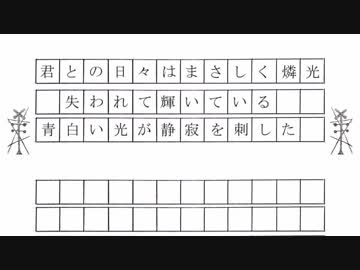 君との日々はまさしく燐光
失われて輝いている
青白い光が静寂を刺した